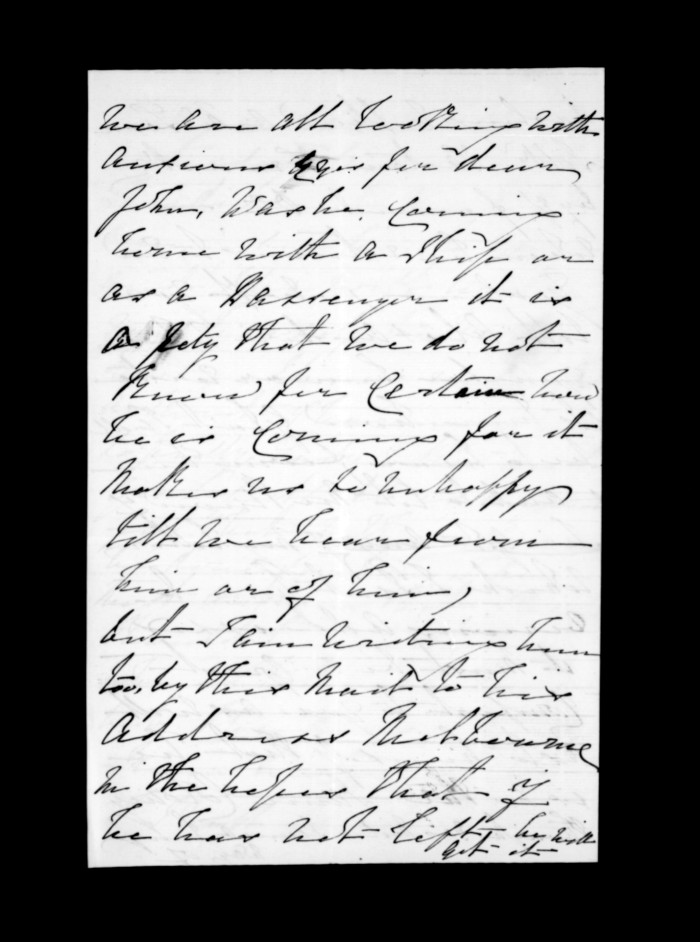 we are all looking with
anxious eyes for dear
John, Was he coming
home with a ship or
as a Passenger it is
a pity that we do not
know for certain how
he is coming for it
makes us so unhappy
till we hear from
him or of him,
but I am writing him
too, by this Mail to his
Address Melbourne
in the hopes that if
he has not left he will
get it